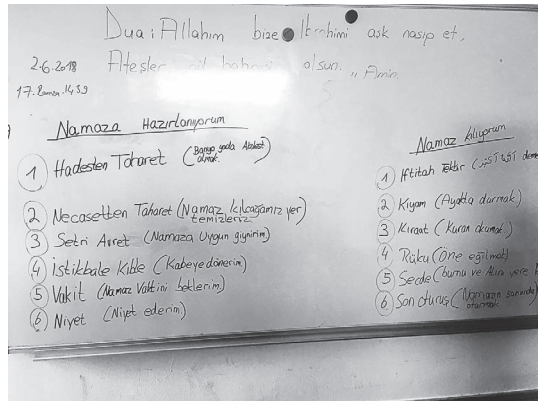 Dua: Allahım bize İbrahimi aşk nasip et,
Ateşler olsun. „ Amin.
2.6.2018
17. Ramazan.1439
Namaza Hazırlanıyorum
1 Hadesten Taharet (Banyo yada Abdest almak.)
2 Necasetten Taharet (Namaz kılcağamız yer temizleriz)
3 Setri Avret (Namaza Uygun giyinirim)
4 İstikbale Kıble (Kabeye dönerim)
5 Vakit (Namaz Vaktini beklerim)
6 Niyet (Niyet ederim)
Namaz kılıyorum
1 İftitah Tekbir
2 Kıyam (Ayakta durmak)
3 Kıraat (Kuran okumak.)
4 Rüku (Öne eğilmak)
5 Secde (burnu ve Alın yere
6 Son oturuş (Namazın sonunda oturmak